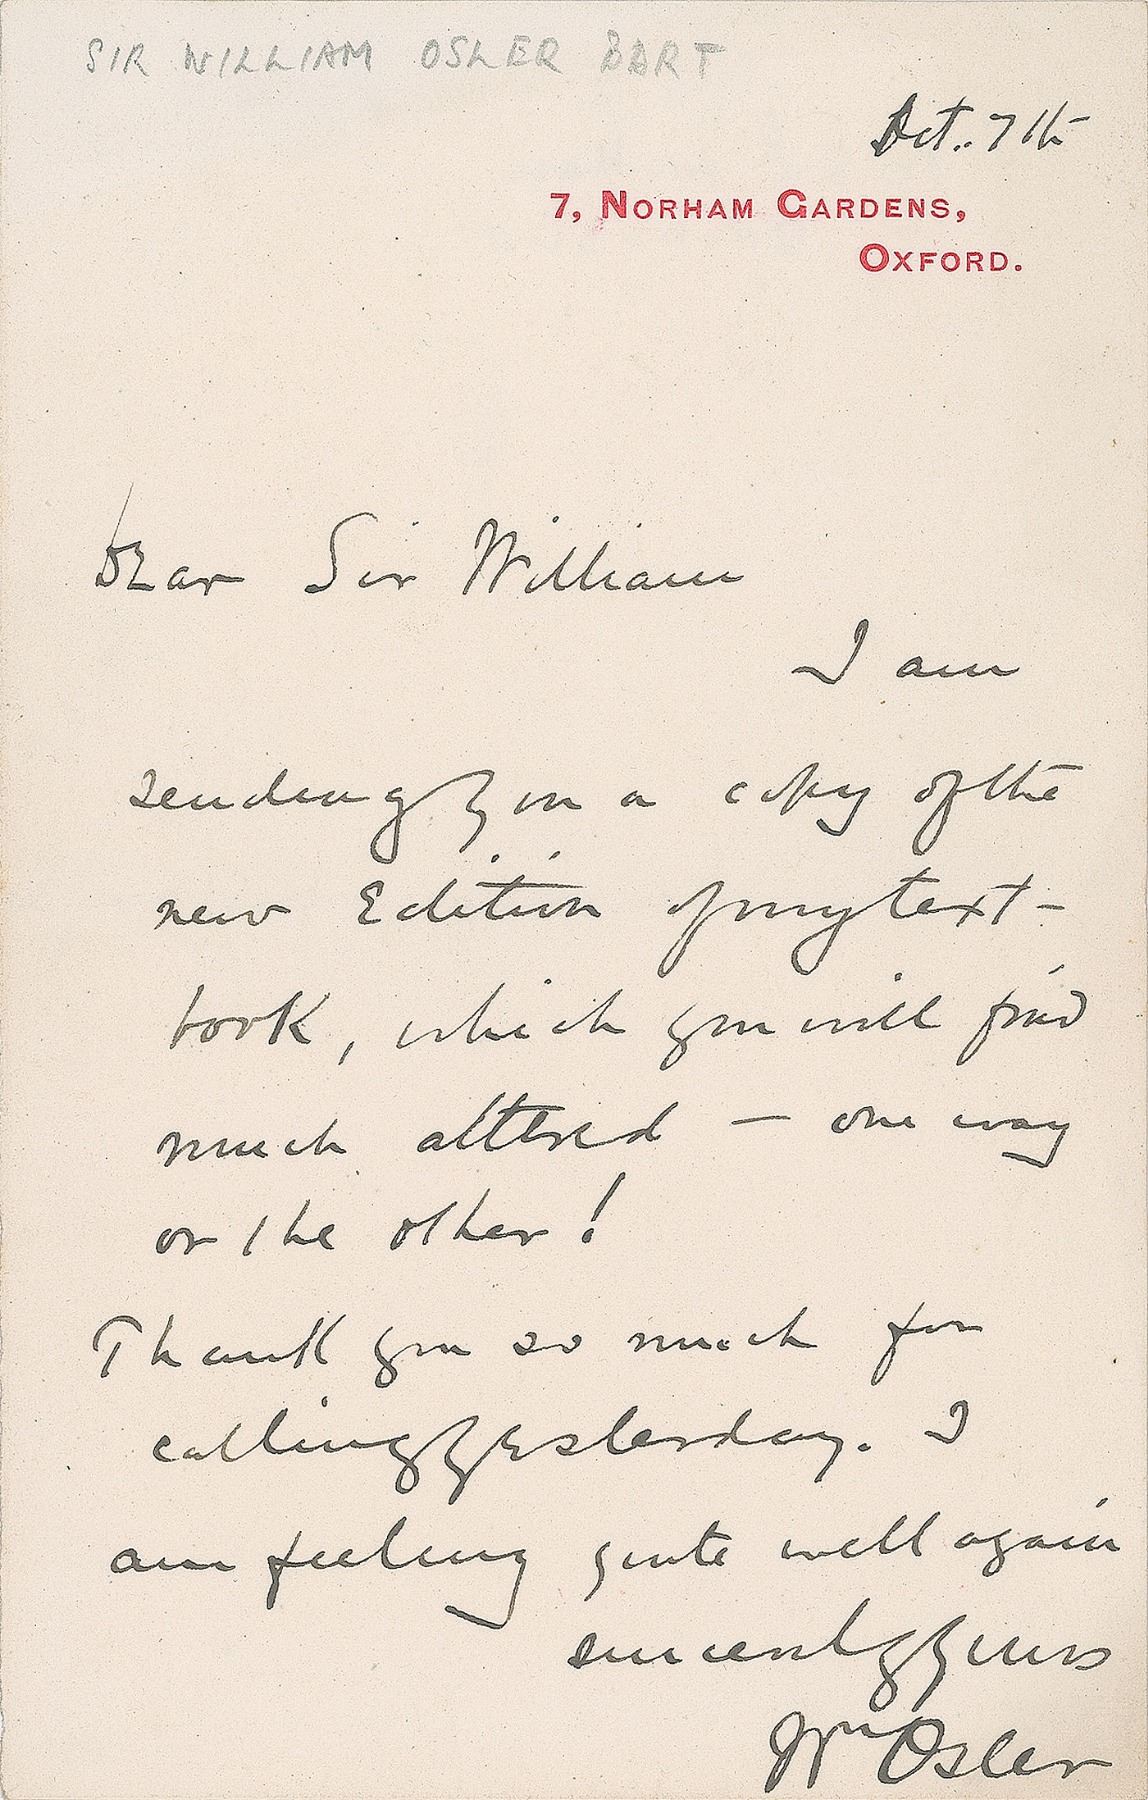 SIR WILLIAM OSLER BART
Oct. 7th
7, NORHAM GARDENS,
OXFORD.
Dear Sir William
I am
sending you a copy of the
new Edition of my text-
book, which you will find
much altered — one way
or the other!
Thank you so much for
calling yesterday. I
am feeling quite well again
sincerely yours
Wm Osler